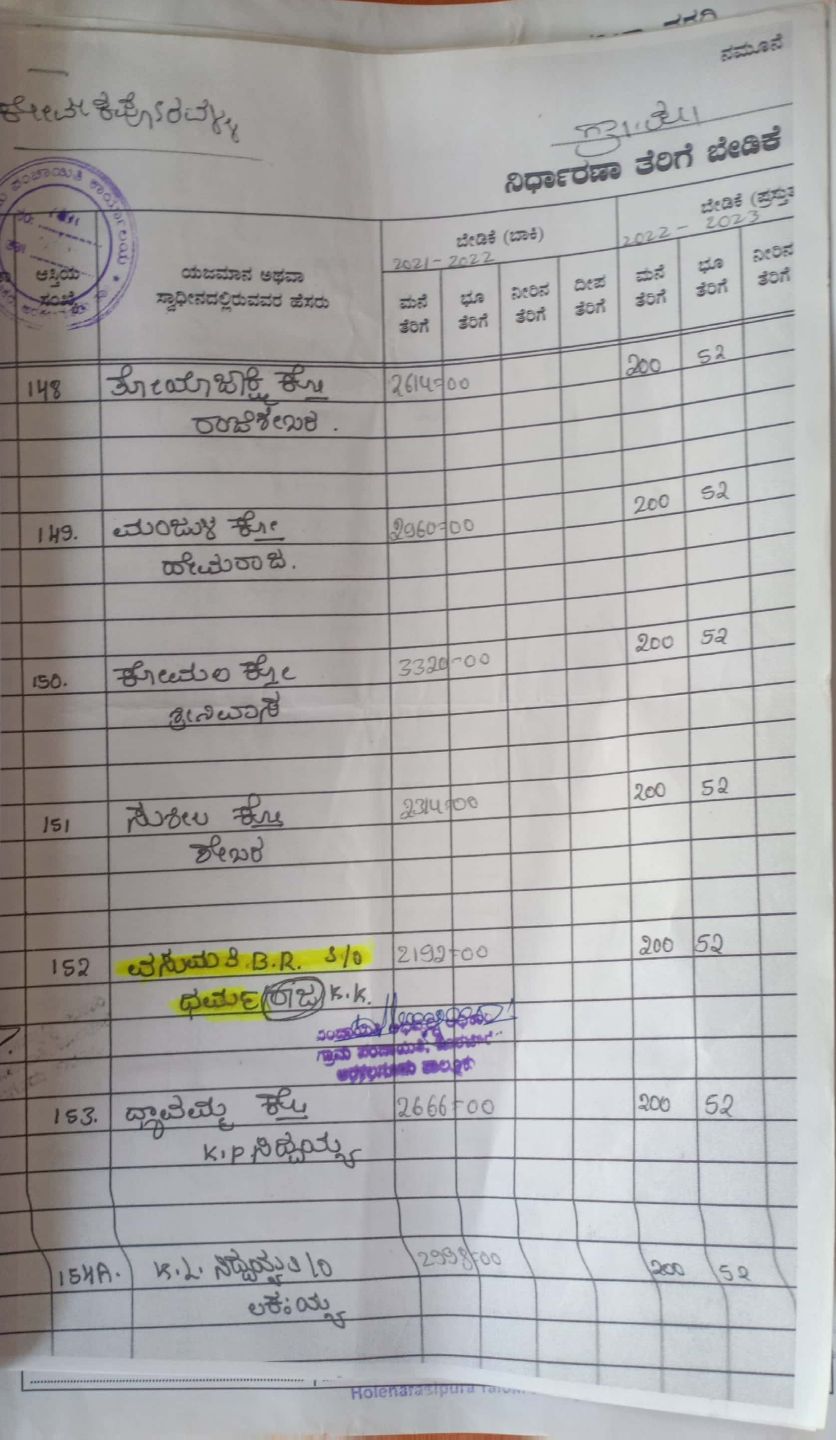 ನಮೂನೆ
ನಿರ್ಧಾರಣಾ ತೆರಿಗೆ ಬೇಡಿಕೆ
ಆಸ್ತಿಯ ಸಂಖ್ಯೆ
ಯಜಮಾನ ಅಥವಾ
ಸ್ವಾಧೀನದಲ್ಲಿರುವವರ ಹೆಸರು
ಬೇಡಿಕೆ (ಬಾಕಿ)
2021-2022
ಬೇಡಿಕೆ (ಪ್ರಸ್ತುತ
2022-2023
ಮನೆ ತೆರಿಗೆ
ಭೂ ತೆರಿಗೆ
ನೀರಿನ ತೆರಿಗೆ
ದೀಪ ತೆರಿಗೆ
ಮನೆ ತೆರಿಗೆ
ಭೂ ತೆರಿಗೆ
ನೀರಿನ ತೆರಿಗೆ
148 2614-00 200 52
149. ಮಂಜುಳ ಕೋ 2960-00 200 52
ಹೇಮರಾಜ.
150. ಕೋಮಲ ಕೋ 3320-00 200 52
ಶ್ರೀನಿವಾಸ
151 2314-00 200 52
ಶೇಖರ
152 ವಸುಮತಿ.B.R. S/o 2192-00 200 52
ಧರ್ಮರಾಜ K.K.
153. ದ್ಯಾವಮ್ಮ ಕೋ 2666-00 200 52
K.P ಸಿದ್ದಯ್ಯ
154A. K.L. ಸಿದ್ದಯ್ಯ S/o 2998-00 200 52
Holenarasipura Taluk